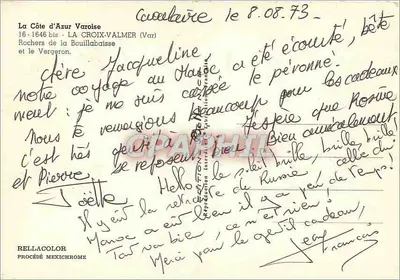 La Côte d'Azur Varoise
16-1646 bis - LA CROIX-VALMER (Var)
Rochers de la Bouillabaisse
et le Vergeron.
Cavalaire le 8.08.73.
Chère Jacqueline,
notre voyage au Maroc a été écourté, bête
ment : je me suis cassée le péronné.
Nous te remercions beaucoup pour les cadeaux
c'est très gentil. J'espère que Rosine
et Pierre se reposent bien. Bien amicalement,
Joëlle
Hello ! le soleil brille, brille, brille
Il y eut la retraite de Russie, celle du
Maroc a eu lieu il y a peu de temps !
Tout va bien ce n'est rien !
Merci pour le gentil cadeau,
Jean François
RELLACOLOR
PROCÉDÉ MEXICHROME